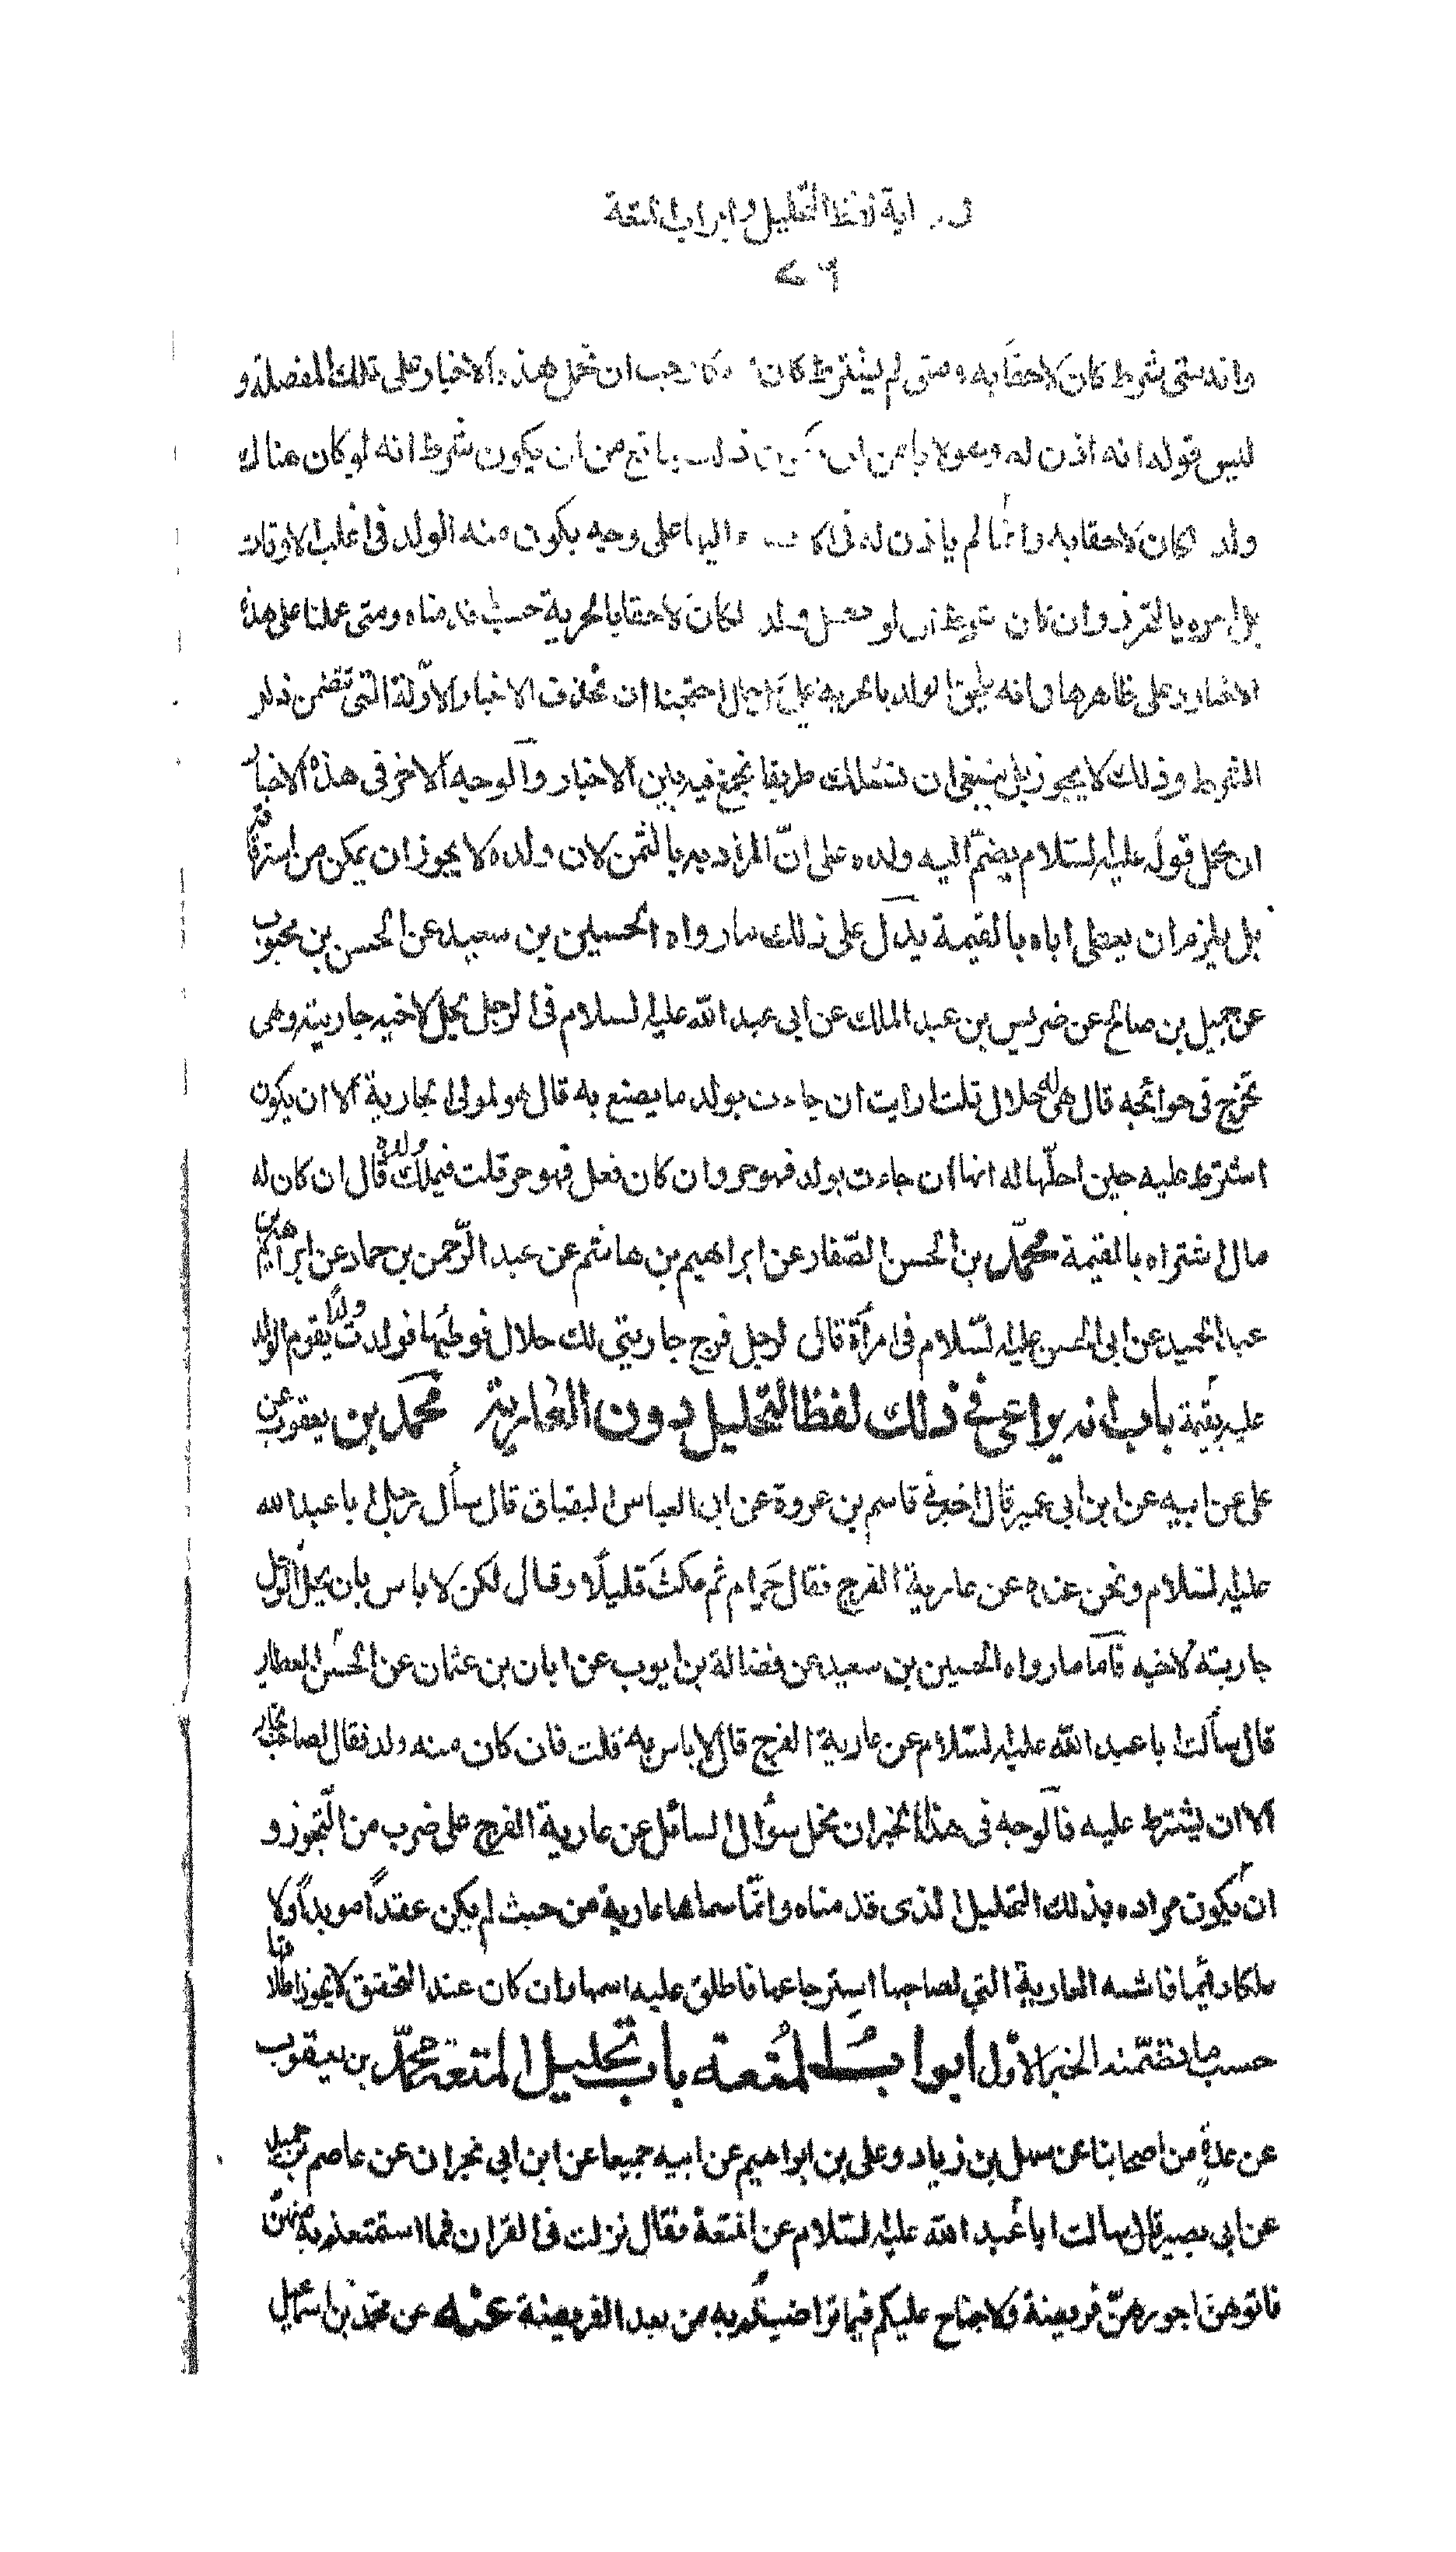 في رعاية لفظ التحليل وابواب المتعة
٧٦
وانه متى شرط كان لاحقا به ومتى لم يشترط كان وجب ان نحمل هذه الاخبار على تلك المفصلة و
ليس قوله انه اذن له وهو لا يامن ان يكون ذلك بمانع من ان يكون شرط انه لو كان هناك
ولد لكان لاحقا به وانما لم ياذن له في اليها على وجه يكون منه الولد في اغلب الاوقات
بل امره بالتحرز وان كان شرط انه لو حصل ولد لكان لاحقا بالحرية حسب ما قدمناه ومتى عملنا على هذه
الاخبار على ظاهرها وانه يلحق الولد بالحرية على كل حال احتجنا ان نحذف الاخبار الاولة التي تتضمن ذكر
الشرط وذلك لا يجوز بل ينبغي ان نسلك طريقا نجمع فيه بين الاخبار والوجه الاخر في هذه الاخبار
ان نحمل قوله عليه السلام يضم اليه ولده على ان المراد به بالثمن لان ولده لا يجوز ان يمكن من استرقاقه
بل يلزم ان يعطي اباه بالقيمة يدل على ذلك ما رواه الحسين بن سعيد عن الحسن بن محبوب
عن جميل بن صالح عن ضريس بن عبد الملك عن ابي عبد الله عليه السلام في الرجل يحل لاخيه جاريته وهي
تخرج في حوائجه قال هي له حلال قلت ارايت ان جاءت بولد ما يصنع به قال هو لمولى الجارية الا ان يكون
اشترط عليه حين احلها له انها ان جاءت بولد فهو حر وان كان فعل فهو حر قلت فيملك ولده قال ان كان له
مال اشتراه بالقيمة محمد بن الحسن الصفار عن ابراهيم بن هاشم عن عبد الرحمن بن حماد عن ابراهيم بن
عبد الحميد عن ابي الحسن عليه السلام في امرأة قالت لرجل فرج جاريتي لك حلال فوطئها فولدت ولدًا يقوم الولد
عليه بقيمة باب انه يراعى في ذلك لفظ التحليل دون العارية محمد بن يعقوب عن
علي عن ابيه عن ابن ابي عمير قال اخبرني قاسم بن عروة عن ابي العباس البقباق قال سأل رجل ابا عبد الله
عليه السلام ونحن عنده عن عارية الفرج فقال حرام ثم مكث قليلًا وقال لكن لا باس بان يحل الرجل
جاريته لاخيه فاما ما رواه الحسين بن سعيد عن فضالة بن ايوب عن ابان بن عثمان عن الحسن العطار
قال سألت ابا عبد الله عليه السلام عن عارية الفرج قال لا باس به قلت فان كان منه ولد فقال لصاحب الجارية
الا ان يشترط عليه فالوجه في هذا الخبر ان نحمل سؤال السائل عن عارية الفرج على ضرب من التجوز و
ان يكون مراده بذلك التحليل الذي قدمناه وانما سماها عارية من حيث لم يكن عقدًا موبدًا ولا
ملكا دائما فاشبه العارية التي لصاحبها استرجاعها فاطلق عليه اسمها وان كان عند التحقق لا يجوز اطلاقها
حسب ما تضمنه الخبر الاول ابواب المتعة باب تحليل المتعة محمد بن يعقوب
عن عدة من اصحابنا عن سهل بن زياد وعلي بن ابراهيم عن ابيه جميعا عن ابن ابي نجران عن عاصم بن حميد
عن ابي بصير قال سالت ابا عبد الله عليه السلام عن المتعة فقال نزلت في القران فما استمتعتم به منهن
فاتوهن اجورهن فريضة ولا جناح عليكم فيما تراضيتم به من بعد الفريضة عنه عن محمد بن اسماعيل